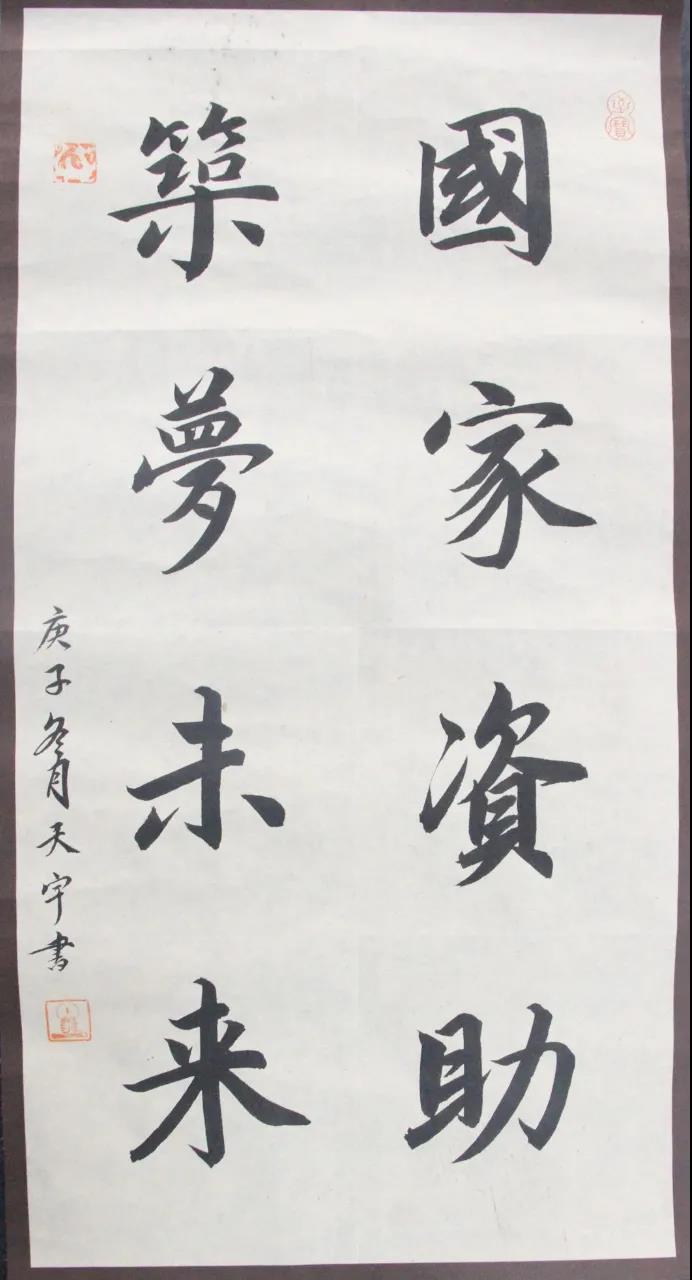 國家資助
築夢未来
庚子冬月天宇書